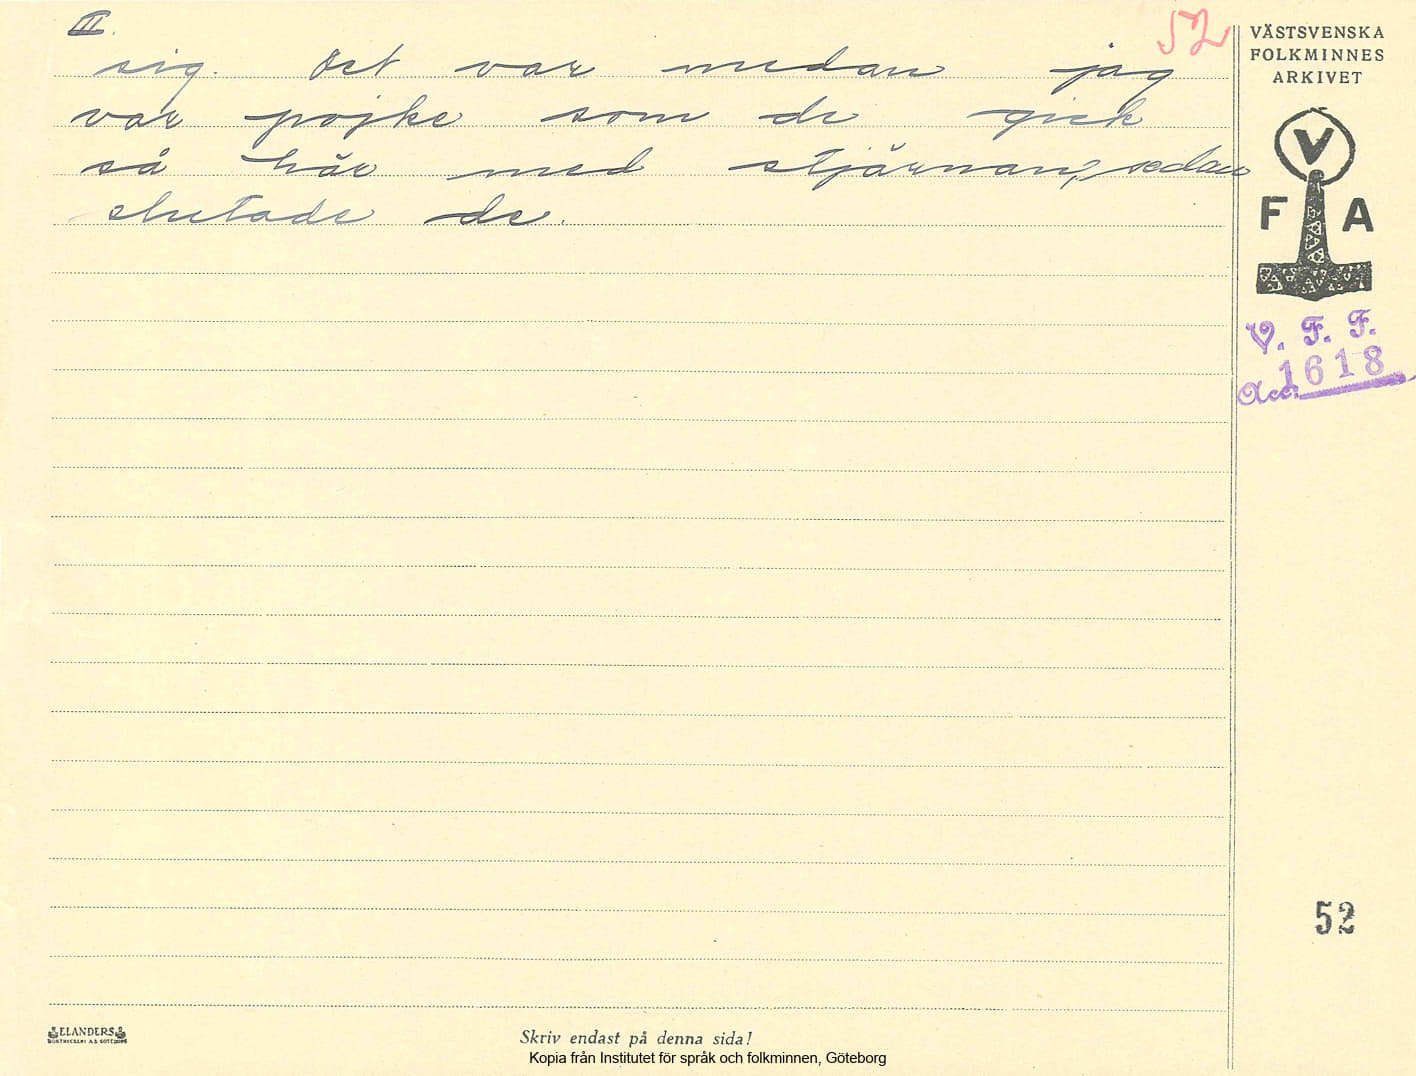 III.
52
sig. Det var medan jag
var pojke som de gick
så här med stjärnan, sedan
slutade de.
VÄSTSVENSKA
FOLKMINNES
ARKIVET
V
F A
V. F. F.
Acc. 1618
52
ELANDERS
BOKTRYCKERI A.B. GÖTEBORG
Skriv endast på denna sida!
Kopia från Institutet för språk och folkminnen, Göteborg